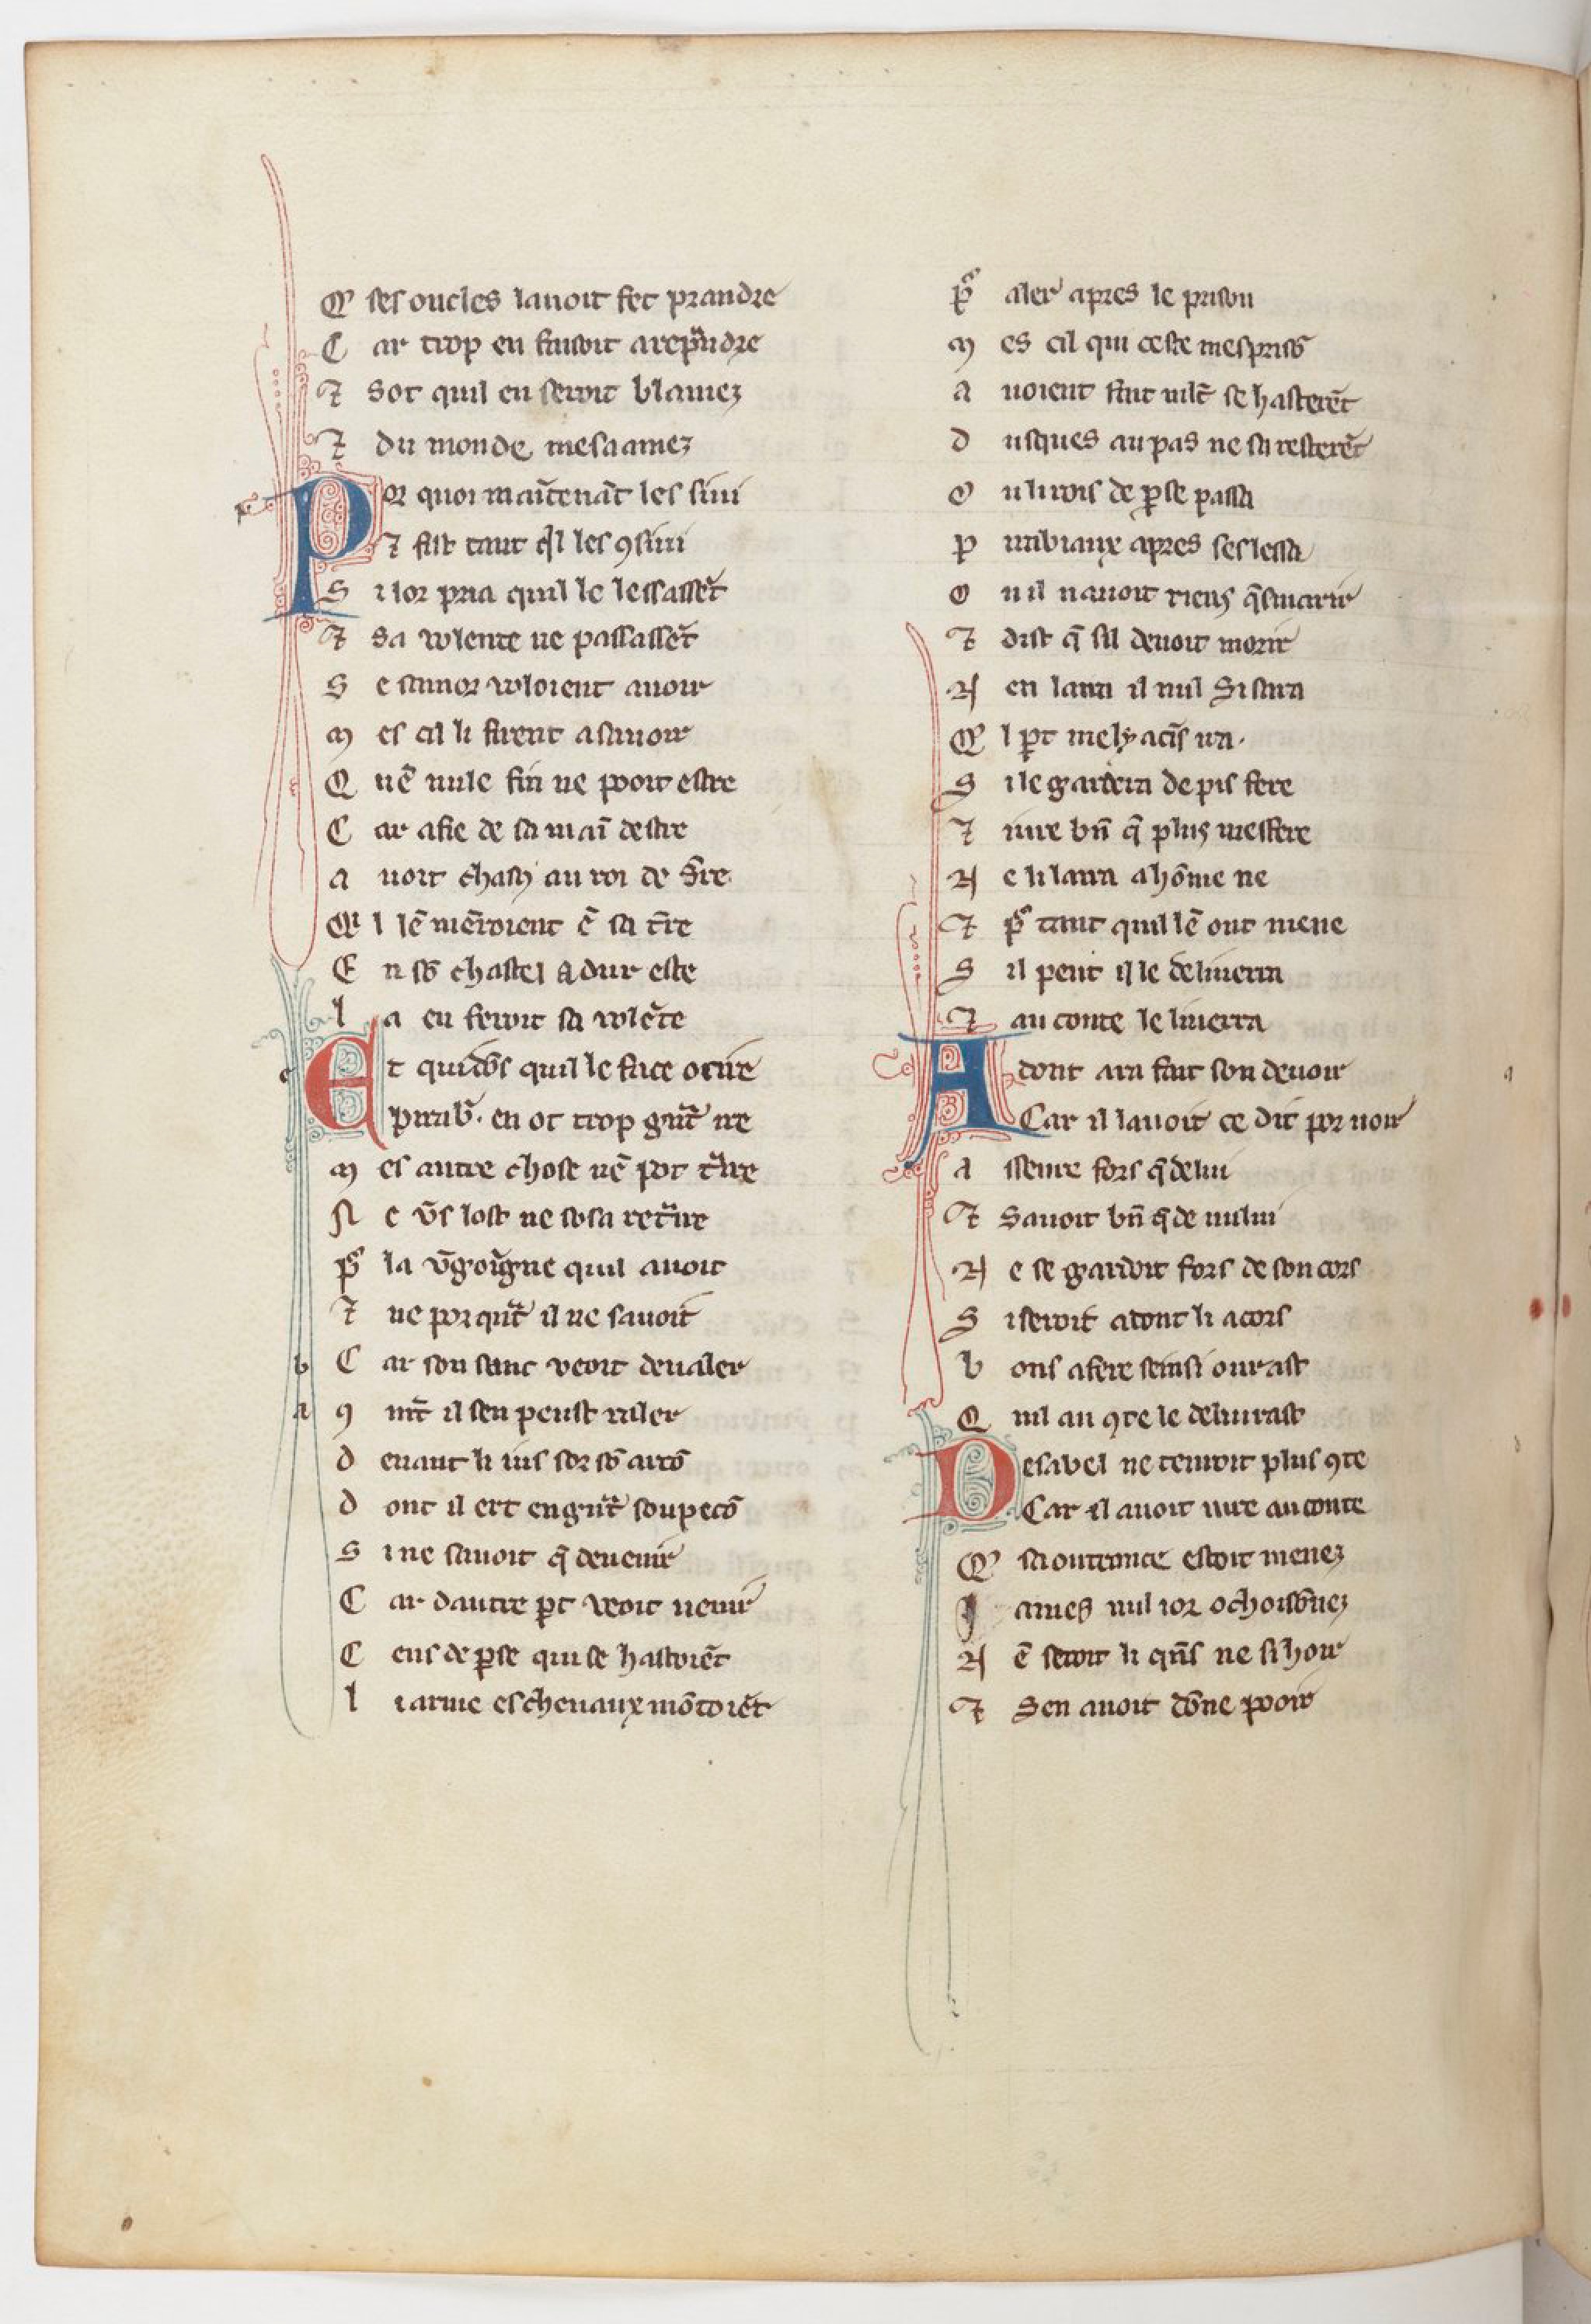 Qͥ ses oncles lauoit fet prandre
C ar trop en faisoit a repͣndre
⁊ sot quil en seroit blamez
⁊ du monde mesaamez
Por quoi maītenāt les siui
⁊ fist tant qͥl les ꝯsiui
S i lor pria quil le lessassēt
⁊ sa volente ne passassēt
S e samor voloient auoir
M es cil li firent a sauoir
Q uē nule fin ne pooit estre
C ar afie de sa maī destre
a uoit chascꝰ au roi de
Qͥ l lē mērroient ē sa t̄re
E n sō chastel a dur este
l a en feroit sa volēte
Et quidōs quil le face ocirre
en ot trop grāt ire
M es autre chose nē pot
N e v̄s lost ne sosa
pͦ la v̄goigne quil auoit
⁊ ne por qͣnt il ne sauoit
b C ar son sanc veoit deualer
a ꝯ mt̄ il sen peust raler
d euant li mis sor sō arcō
d ont il ert en grāt soupecō
S i ne sauoit q̄ deuenir
C ar dautre ꝑt veoit uenir
C eus de ꝑse qui se hastoiēt
l i arme es cheuaux mōtoiēt
pͦ aler apres le prison
M es cil qui ceste mesprisō
a uoient fait uilt̄ se hasterēt
d usques au pas ne sa resterēt
O u li rois de ꝑse passa
P iriabiaux apres ses lessa
O u il nauoit riens q̄ smarir
⁊ dist q̄ sil deuoit morir
N en laira il nul si saura
Qͥ l ꝑt melyacis ua.
S i le gardera de pis fere
⁊ iure bn̄ q̄ plus mesfere
N e li laira a hōme ne
⁊ pͦ tant quil lē ont mene
S il peut il le deliuerra
⁊ au conte le liuerra
Adont ara fait son deuoir
Car il lauoit ce dit por uoir
a sseure fors q̄ de lui
⁊ sauoit bn̄ q̄ de nului
N e se gardoit fors de son cors
S i seroit adont li acors
b ons a fere seinsi ourast
Q uil au ꝯte le deliurast
Desabel ne tenroit plus ꝯte
Car il auoit iure au conte
Qͥ sa outrance estoit menez
J ames nul ior
N ē seroit li qn̄s ne si hoir
⁊ sen auoit dōne pooir